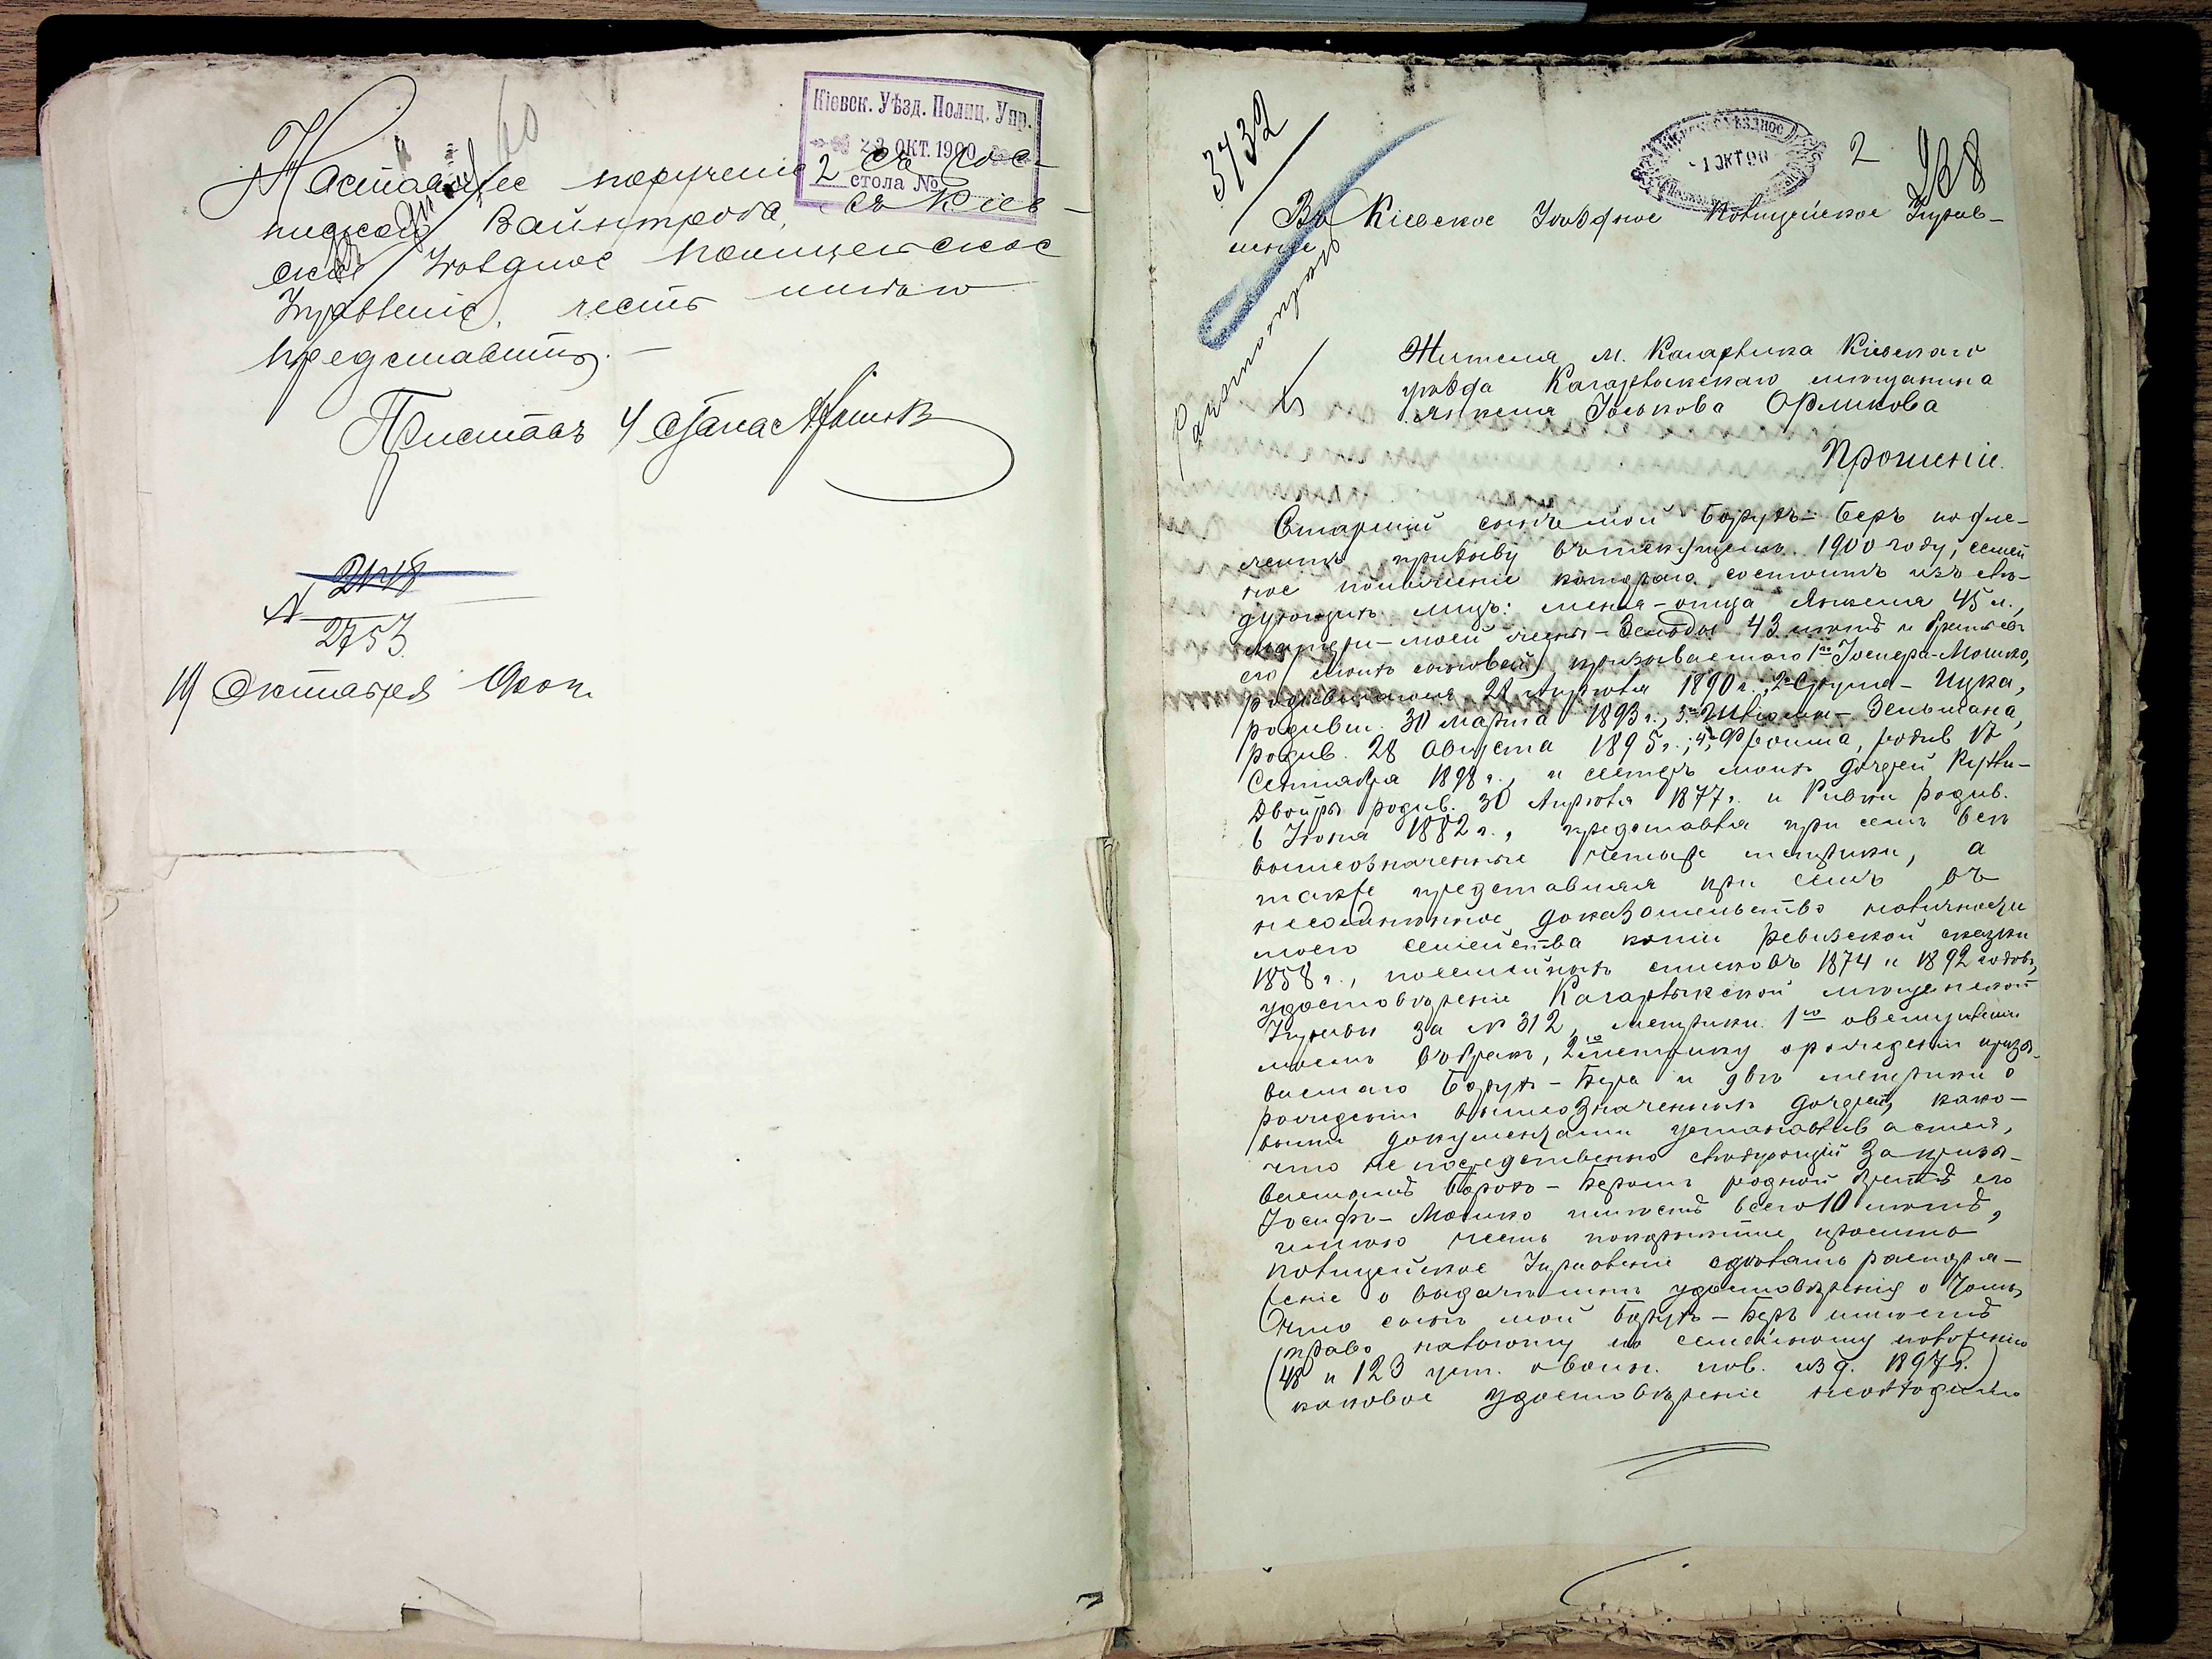 60
Кіевск. Уѣзд. Полиц. Упр.
23 ОКТ. 1900
2 стола №
Настоящее порученіе съ рос-
пиской Вайнтроба, въ Кіев-
ское Уѣздное Полицейское
Управленіе, честь имѣю
представить.
Приставъ 4 стана
2748
№ 2753
19 Октября 1900 г.
3732
1 ОКТ 90
2
268
Въ Кіевское Уѣздное Полицейское Управ-
леніе
Жителя м. Кагарлыка Кіевскаго
уѣзда Кагарлыкскаго мещанина
Янкеля Іоськова Орликова
Прошеніе.
Старшій сынъ мой Борухъ-Беръ подле-
житъ призыву въ текущемъ 1900 году, семей
ное положеніе котораго состоитъ изъ слѣ-
дующихъ лицъ: меня-отца Янкеля 45 л.,
матери-моей жены- 43 лѣтъ и братьевъ
его (моихъ сыновей) призываемаго 1го Іосифа-Мошко,
родившагося 21 Апрѣля 1890 г., 2го Сруля-Ицка,
родивш. 30 марта 1893 г., 3го Зельмана,
родив. 28 Августа 1895 г.; 4го Фроима, родив 12
Сентября 1898 г., и сестеръ моихъ дочерей Рухли-
Двойры родив. 30 Апрѣля 1877 г. и Ривки родив.
6 Іюня 1882 г., представляя при семъ всѣ
вышеозначенные четыре метрики, а
также представляя при семъ въ
несомнѣнное доказательство наличности
моего семейства копіи ревизской сказки
1858 г., посемейныхъ списковъ 1874 и 1892 годовъ,
удостовѣреніе Кагарлыкской мѣщанской
Управы за № 312, метрики 1го о вступленіи
моемъ въ бракъ, 2го метрику о рожденіи призы-
ваемаго Борухъ-Бера и двѣ метрики о
рожденіи вышеозначенныхъ дочерей, како-
выми документами устанавливается,
что непосредственно слѣдующій за призы-
ваемымъ Борухъ-Беромъ родной братъ его
Іосифъ-Мошко имѣетъ всего 10 лѣтъ,
имѣю честь покорнѣйше просить
Полицейское Управленіе сдѣлать распоря-
женіе о выдачѣ мнѣ удостовѣренія о томъ,
что сынъ мой Борухъ-Беръ имѣетъ
право на льготу по семейному положенію
(48 и 123 уст. о воин. пов. изд. 1897 г.)
каковое удостовѣреніе необходимо